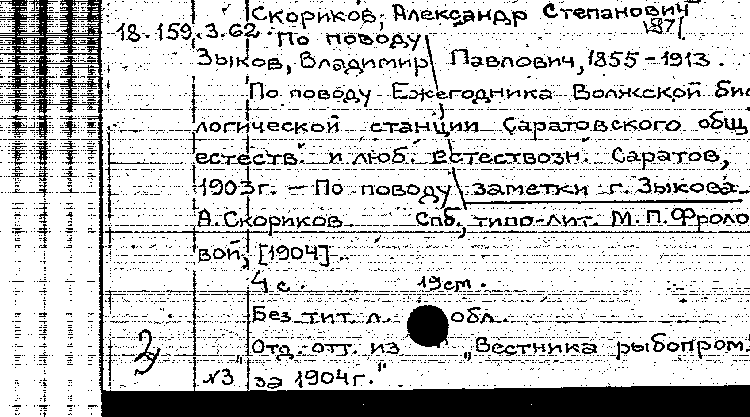 Скориков, Александр Степанович
1871
18.159.3.62 По поводу
Зыков, Владимир Павлович, 1855-1913.
По поводу Ежегодника Волжской био
логической станции Саратовского общ.
естеств. и люб. естествозн. Саратов,
1903г. - По поводу заметки г. Зыкова.
А. Скориков Спб., типо-лит. М.П.Фроло
вой, [1904].
4 с. 19см.
Без тит. л. обл.
"Отд. отт. из "Вестника рыбопром."
№3 за 1904г."